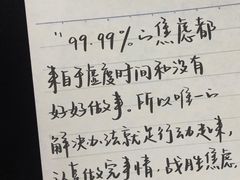 "99.99%的焦虑都
来自于虚度时间和没有
好好做事。所以唯一的
解决办法就是行动起来，
认真做完事情，战胜焦虑